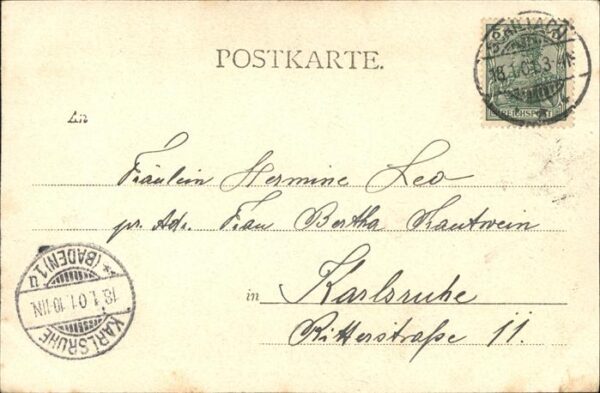 POSTKARTE.
18.1.01.3-4N
REICHSPOST
An
Fräulein Hermine Leo
pr. Adr. Frau Bertha Kautwein
in Karlsruhe
Ritterstraße 11.
KARLSRUHE
18.1.01.10-11N.
* (BADEN) 1 u